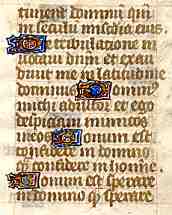 timent dominum qm̄
in seculū misc̄dia eius.
De tribulatione in
uocaui dnm̄ et exau
diuit me in latitudine
dominus Dominꝰ
michi adiutor et ego
despiciam inimicos
meos Bonum est
confidere in domino
q̄ confidere in homīe.
Bonum est sperare
in domino q̄ sperare